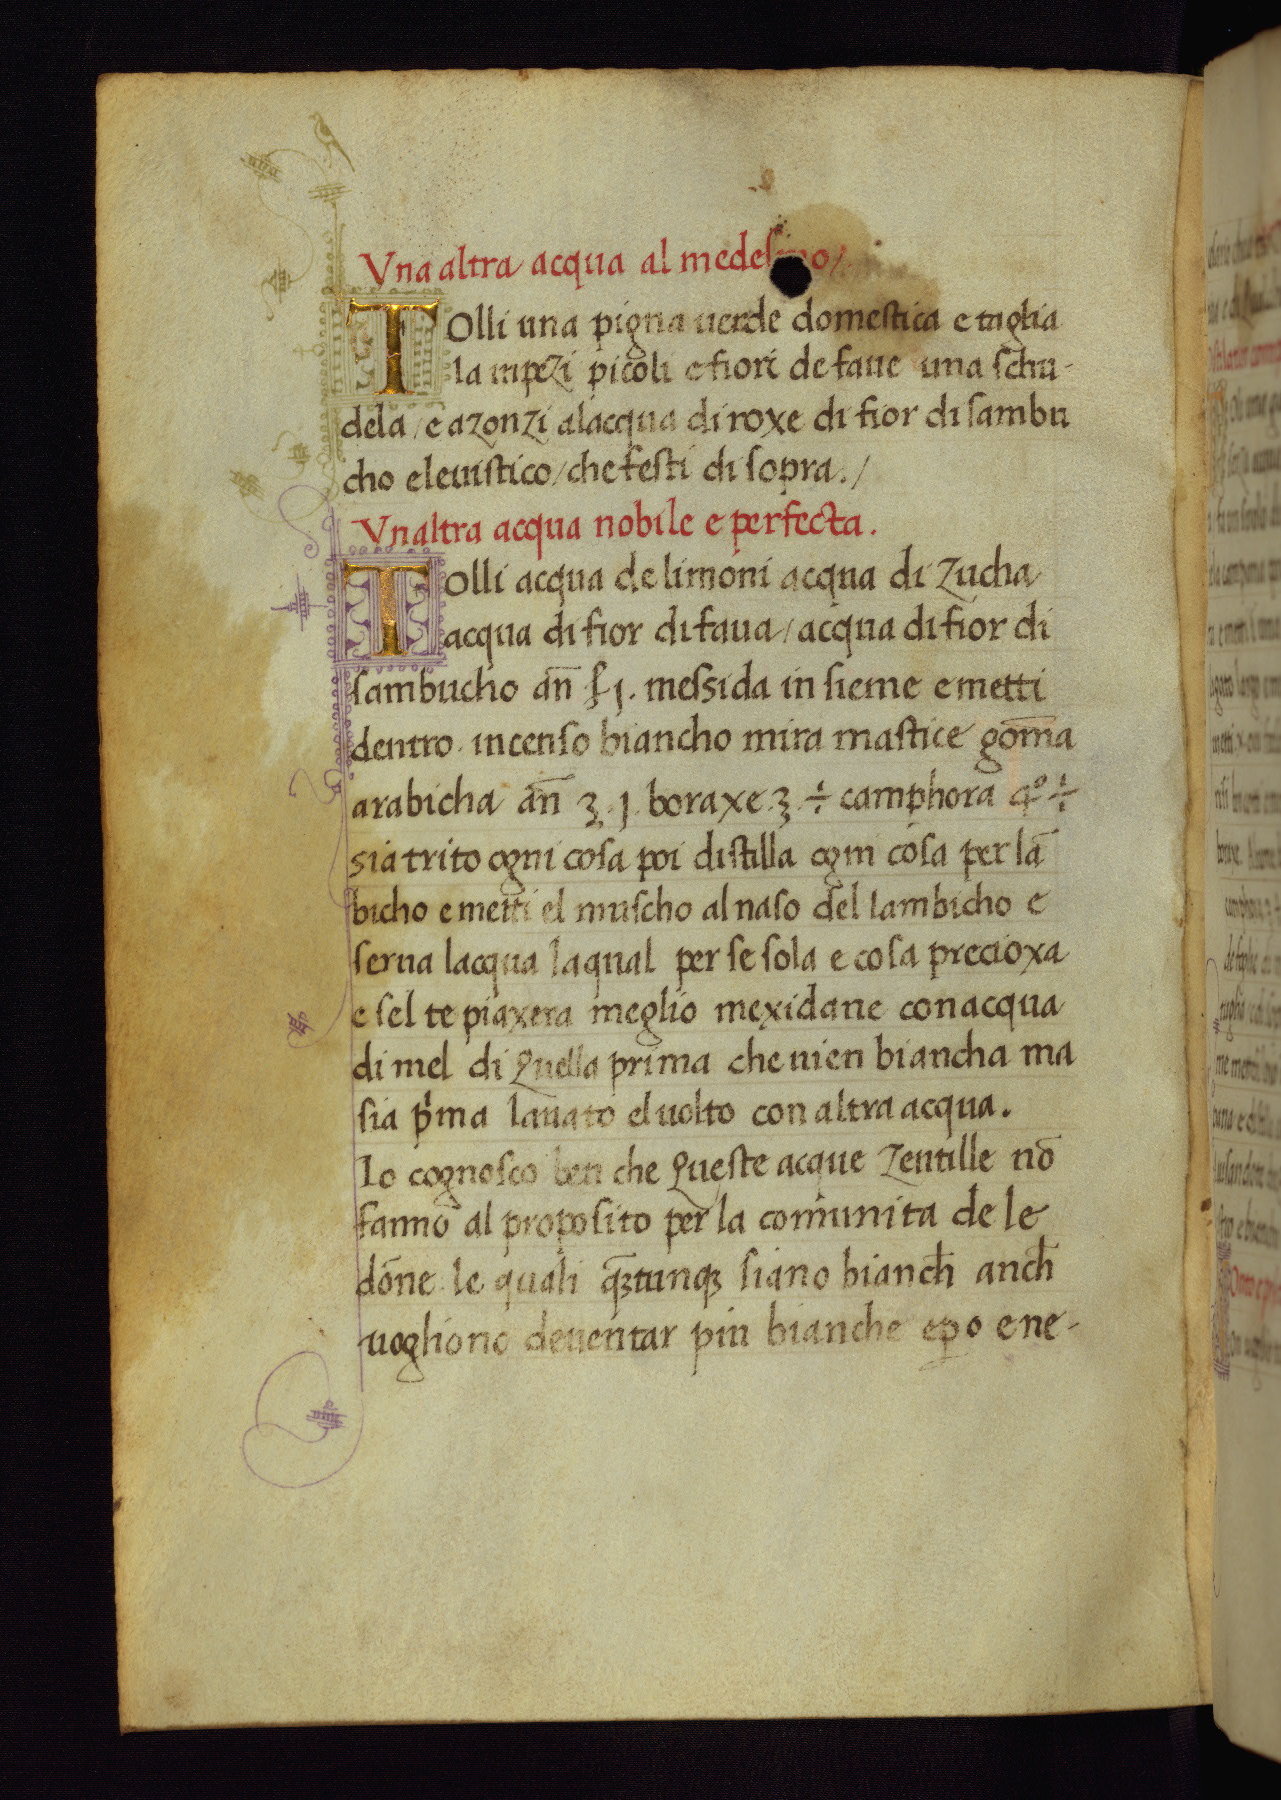 Vna altra acqua al medesimo/.
TOlli una pigna uerde domestica e taglia
la inpezi picoli e fiori de faue una schu-
dela/e azonzi alacqua di roxe di fior di sambu
cho e leuistico/che festi di sopra./
Vnaltra acqua nobile e perfecta.
TOlli acqua de limoni acqua di zucha
acqua di fior di faua/acqua di fior di
sambucho an̄ ℔ j. messida in sieme e metti
dentro. incenso biancho mira mastice gom̄a
arabicha an̄ ʒ. j. boraxe. ʒ. ÷ camphora qͦ ÷
sia trito ogni cosa poi distilla ogni cosa per lā
bicho e metti el muscho al naso del lambicho e
serua lacqua laqual per se sola e cosa precioxa
e sel te piaxera meglio mexidane con acqua
di mel di quella prima che uien biancha ma
sia pͥma lauato el uolto con altra acqua.
Io cognosco ben che queste acque zentille nō
fanno al proposito per la comunita de le
dōne. le quali qꝫtunqꝫ siano bianch̄ anch̄
uogliono deuentar piu bianche ep̲o e ne-